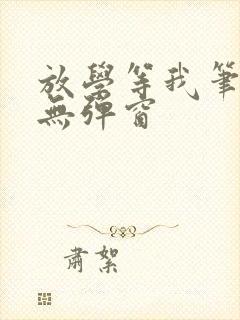 放學等我筆
無彈窗
肅絮